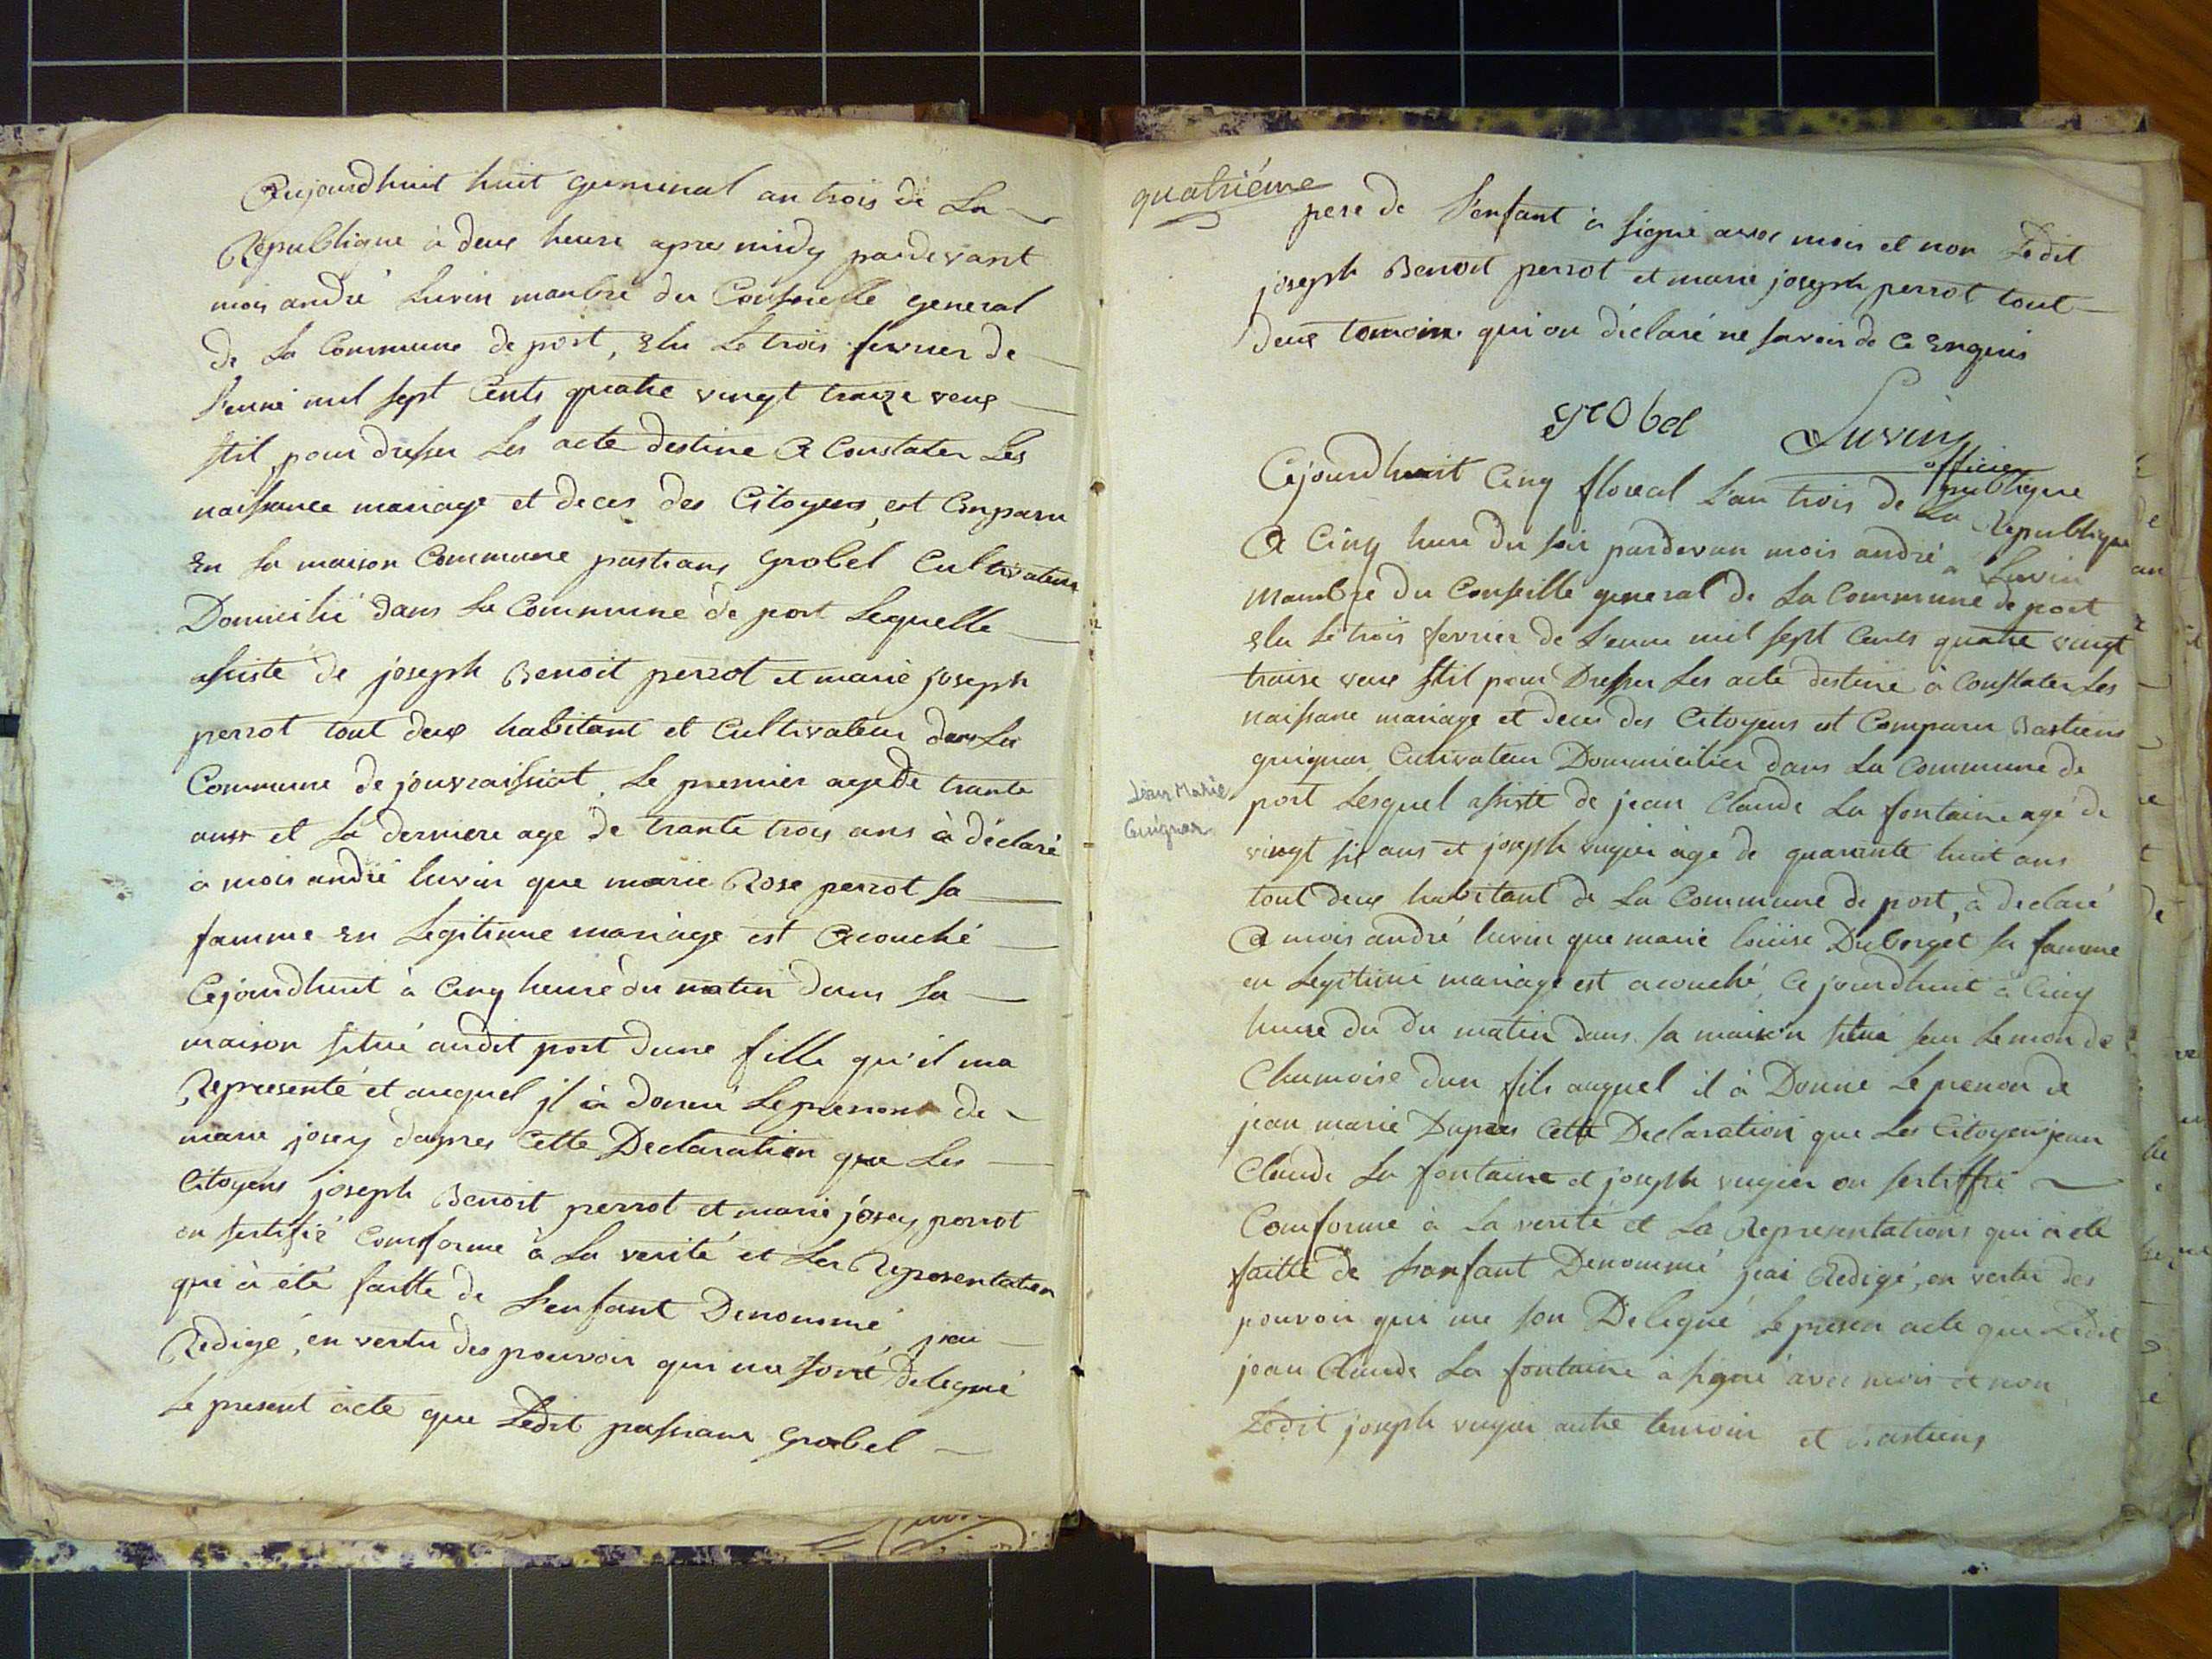 Aujourdhuit huit germinal an trois de La
Republique à deux heure apres midy pardevant
mois andré Luvin manbre du Conseille general
de La Commune de port, Elu Le trois fevrier de
l'enné mil sept Cents quatre vingt traize veux
stil pour dresser Les acte destine A Constater Les
naissance mariage et deces des Citoyens, est Comparu
En La maison Commune Grobel Cultivateur
Domicilié dans La Commune de port Lequelle
assiste de joseph Benoit perrot et marie joseph
perrot tout deux habitant et Cultivateur dans La
Commune de Le premier age de trante
ans et La derniere age de trante trois ans à déclaré
à mois andré luvin que marie Rose perrot sa
famme En Legitime mariage est Acouché
Cejourdhuit à Cinq heure du matin dans sa
maison situé audit port dune fille qu'il ma
Représenté et auquel jl à donné Le prenom de
marie josey dapres Cette Declaration que Les
Citoyens joseph Benoit perrot et marie josey perrot
on sertifié Comforme à La verité et La Representation
qui à été faitte de L'enfant Denommé, jai
Redigé, en vertu des pouvoir qui me sont delegué
Le present acte que Ledit Grobel
quatriéme
pere de l'enfant à signé avec mois et non Ledit
joseph Benoit perrot et marie joseph perrot tout
deux temoins qui on déclaré ne savoir de Ce Enquis
grobel Luvin
officier
publique
Cejourdhuit Cinq floreal L'an trois de La Republique
A Cinq heure du soir pardevan mois andré Luvin
Manbre du Conseille general de La Commune de port
Elu Le trois fevrier de L'enne mil sept Cents quatre vingt
traise veux stil pour Dresser Les acte destiné à Constater Les
naissane mariage et deces des Citoyens est Comparu Bastiens
guignar Cutivateur Dommicilier dans La Commune de
Jean Marie
Guignar
port Lesquel assiste de jean Claude La fontaine agé de
vingt six ans et joseph vuyier àge de quarante huit ans
tout deux habitant de La Commune de port, à declaré
A mois andré luvin que marie louise Duborget sa famme
en Legitime mariage est acouché Ce jourdhuit à Cinq
heure du du matin dans sa maison situé sur Le mon de
Chamoise dun fils auquel il à Donne Le prenon de
jean marie Dapres Cette Declaration que Les Citoyen jean
Claude La fontaine et joseph vuyier on sertiffié
Comforme à La verité et La Representations qui à été
faitte de Lanfant Denommé jai Redigé, en vertu des
pouvoir qui me son Delegué Le presen acte que Ledit
jean Claude La fontaine à signé avec mois et non
Ledit joseph vuyier autre temoin et Bastiens